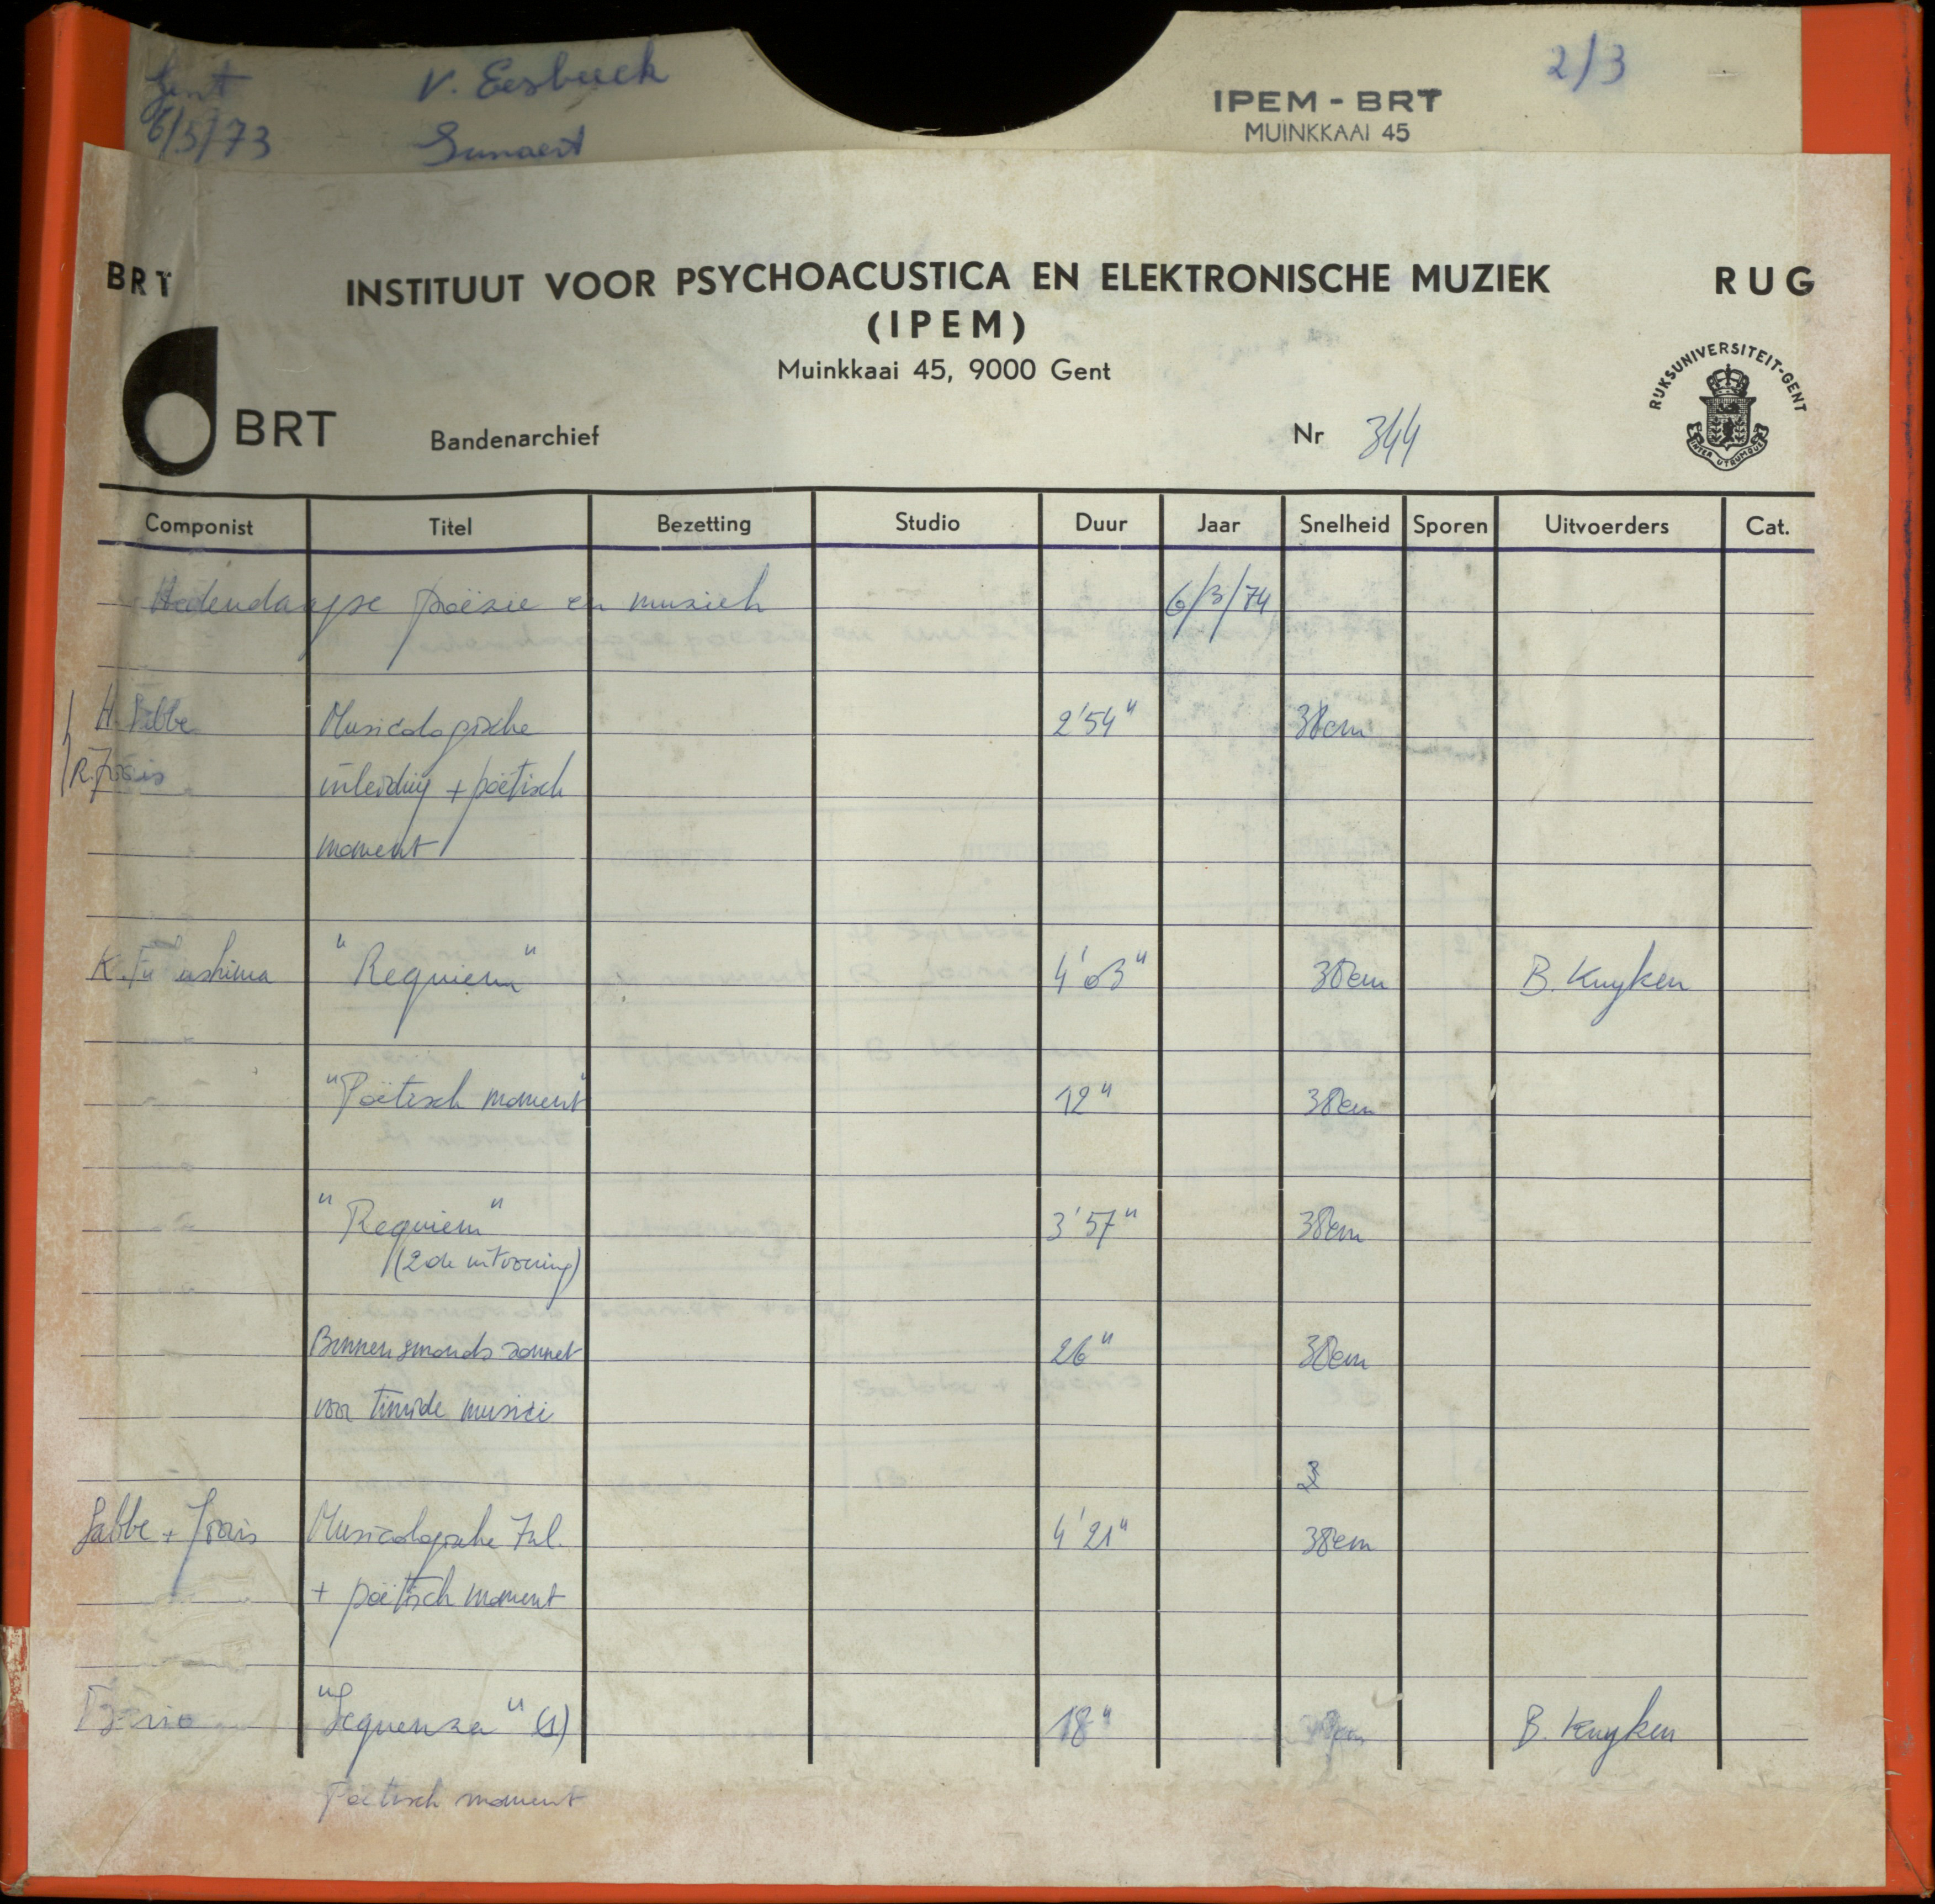 Gent V. Eesbeeck 2/3
6/5/73 Sunaert
IPEM - BRT
MUINKKAAI 45
BRT INSTITUUT VOOR PSYCHOACUSTICA EN ELEKTRONISCHE MUZIEK RUG
(IPEM)
Muinkkaai 45, 9000 Gent
RIJKSUNIVERSITEIT-GENT
INTER UTRUMQUE
BRT Bandenarchief Nr 344
Componist Titel Bezetting Studio Duur Jaar Snelheid Sporen Uitvoerders Cat.
Hedendaagse poëzie en muziek 6/3/74
H. Sabbe Musicologische 2'54" 38cm
R. Joris inleiding + poëtisch
moment
K. Fu ushima "Requiem" 4'03" 38cm B. Kuyken
"Poëtisch moment" 12" 38cm
"Requiem" 3'57" 38cm
(2de uitvoering)
Binnensmonds sonnet 26" 38cm
voor timide musici
Sabbe + Joris Musicologische Inl. 4'21" 38cm
+ poëtisch moment
Berio "Sequenza" (1) 18" B. Kuyken
Poëtisch moment